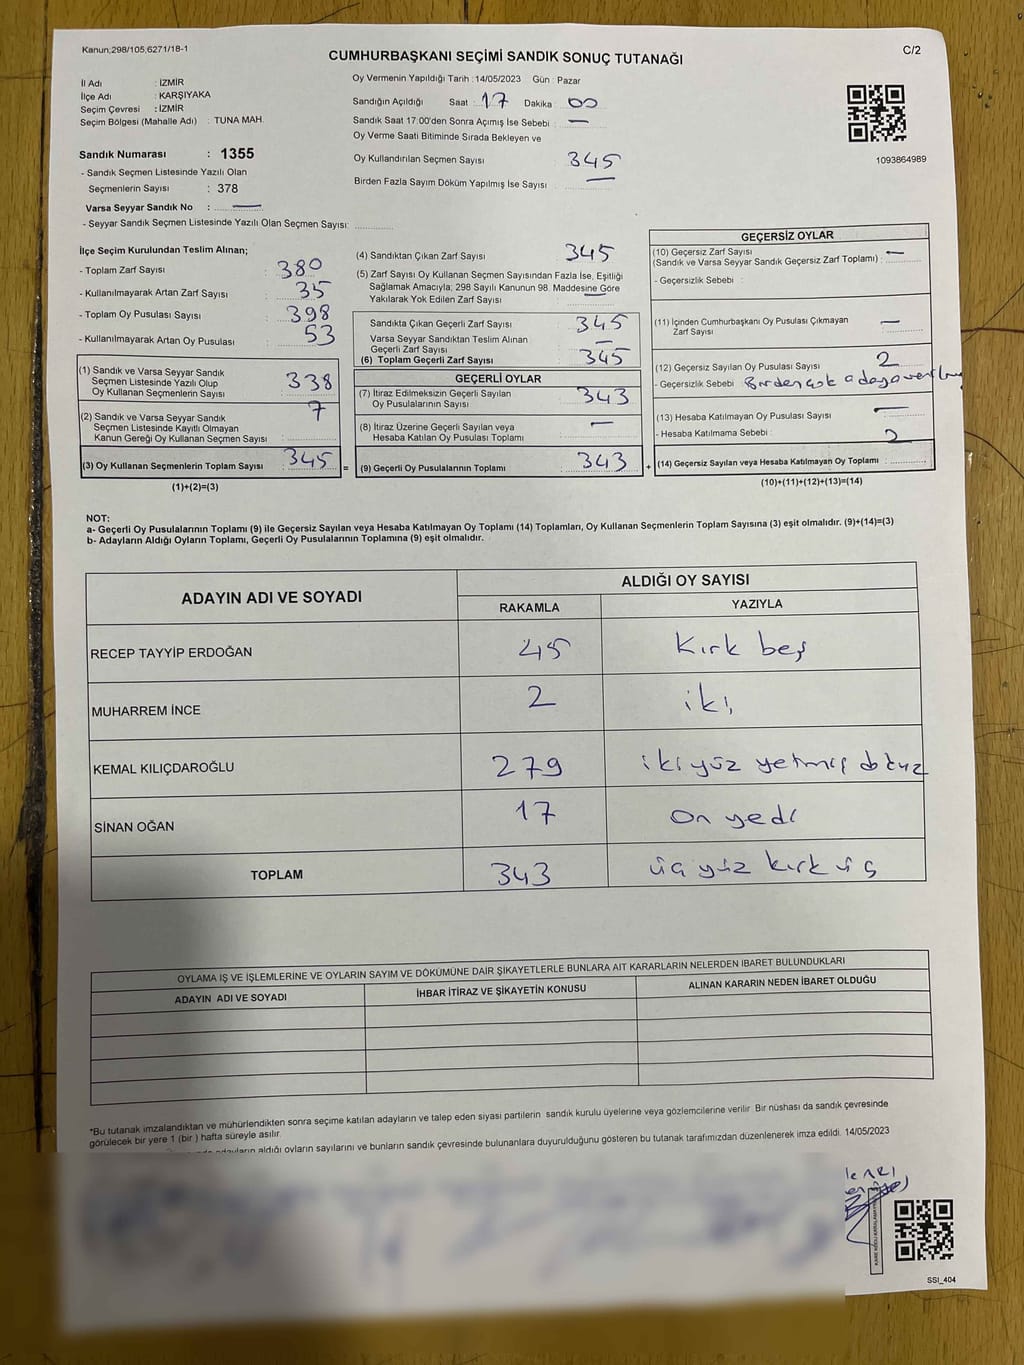 Kanun;298/105,6271/18-1
C/2
CUMHURBAŞKANI SEÇİMİ SANDIK SONUÇ TUTANAĞI
İl Adı : İZMİR
İlçe Adı : KARŞIYAKA
Seçim Çevresi : İZMİR
Seçim Bölgesi (Mahalle Adı) : TUNA MAH.
Sandık Numarası : 1355
- Sandık Seçmen Listesinde Yazılı Olan
Seçmenlerin Sayısı : 378
Varsa Seyyar Sandık No : —
- Seyyar Sandık Seçmen Listesinde Yazılı Olan Seçmen Sayısı:
Oy Vermenin Yapıldığı Tarih : 14/05/2023 Gün : Pazar
Sandığın Açıldığı Saat : 17 Dakika : 00
Sandık Saat 17:00'den Sonra Açımış İse Sebebi : —
Oy Verme Saati Bitiminde Sırada Bekleyen ve
Oy Kullandırılan Seçmen Sayısı 345
Birden Fazla Sayım Döküm Yapılmış İse Sayısı —
1093864989
İlçe Seçim Kurulundan Teslim Alınan;
- Toplam Zarf Sayısı : 380
- Kullanılmayarak Artan Zarf Sayısı : 35
- Toplam Oy Pusulası Sayısı : 398
- Kullanılmayarak Artan Oy Pusulası : 53
(1) Sandık ve Varsa Seyyar Sandık
Seçmen Listesinde Yazılı Olup
Oy Kullanan Seçmenlerin Sayısı : 338
(2) Sandık ve Varsa Seyyar Sandık
Seçmen Listesinde Kayıtlı Olmayan
Kanun Gereği Oy Kullanan Seçmen Sayısı : 7
(3) Oy Kullanan Seçmenlerin Toplam Sayısı : 345
(1)+(2)=(3)
=
(4) Sandıktan Çıkan Zarf Sayısı : 345
(5) Zarf Sayısı Oy Kullanan Seçmen Sayısından Fazla İse, Eşitliği
Sağlamak Amacıyla; 298 Sayılı Kanunun 98. Maddesine Göre
Yakılarak Yok Edilen Zarf Sayısı : —
Sandıkta Çıkan Geçerli Zarf Sayısı : 345
Varsa Seyyar Sandıktan Teslim Alınan
Geçerli Zarf Sayısı : —
(6) Toplam Geçerli Zarf Sayısı : 345
GEÇERLİ OYLAR
(7) İtiraz Edilmeksizin Geçerli Sayılan
Oy Pusulalarının Sayısı : 343
(8) İtiraz Üzerine Geçerli Sayılan veya
Hesaba Katılan Oy Pusulası Toplamı : —
(9) Geçerli Oy Pusulalarının Toplamı : 343
+
GEÇERSİZ OYLAR
(10) Geçersiz Zarf Sayısı
(Sandık ve Varsa Seyyar Sandık Geçersiz Zarf Toplamı) : —
- Geçersizlik Sebebi :
(11) İçinden Cumhurbaşkanı Oy Pusulası Çıkmayan
Zarf Sayısı : —
(12) Geçersiz Sayılan Oy Pusulası Sayısı : 2
- Geçersizlik Sebebi : Birden çok adaya
(13) Hesaba Katılmayan Oy Pusulası Sayısı : —
- Hesaba Katılmama Sebebi :
(14) Geçersiz Sayılan veya Hesaba Katılmayan Oy Toplamı : 2
(10)+(11)+(12)+(13)=(14)
NOT:
a- Geçerli Oy Pusulalarının Toplamı (9) ile Geçersiz Sayılan veya Hesaba Katılmayan Oy Toplamı (14) Toplamları, Oy Kullanan Seçmenlerin Toplam Sayısına (3) eşit olmalıdır. (9)+(14)=(3)
b- Adayların Aldığı Oyların Toplamı, Geçerli Oy Pusulalarının Toplamına (9) eşit olmalıdır.
ADAYIN ADI VE SOYADI
ALDIĞI OY SAYISI
RAKAMLA YAZIYLA
RECEP TAYYİP ERDOĞAN 45 Kırk beş
MUHARREM İNCE 2 iki
KEMAL KILIÇDAROĞLU 279 iki yüz yetmiş dokuz
SİNAN OĞAN 17 On yedi
TOPLAM 343 üç yüz kırk üç
OYLAMA İŞ VE İŞLEMLERİNE VE OYLARIN SAYIM VE DÖKÜMÜNE DAİR ŞİKAYETLERLE BUNLARA AİT KARARLARIN NELERDEN İBARET BULUNDUKLARI
ADAYIN ADI VE SOYADI İHBAR İTİRAZ VE ŞİKAYETİN KONUSU ALINAN KARARIN NEDEN İBARET OLDUĞU
*Bu tutanak imzalandıktan ve mühürlendikten sonra seçime katılan adayların ve talep eden siyasi partilerin sandık kurulu üyelerine veya gözlemcilerine verilir. Bir nüshası da sandık çevresinde
görülecek bir yere 1 (bir ) hafta süreyle asılır.
aldığı oyların sayılarını ve bunların sandık çevresinde bulunanlara duyurulduğunu gösteren bu tutanak tarafımızdan düzenlenerek imza edildi. 14/05/2023
SSI_404